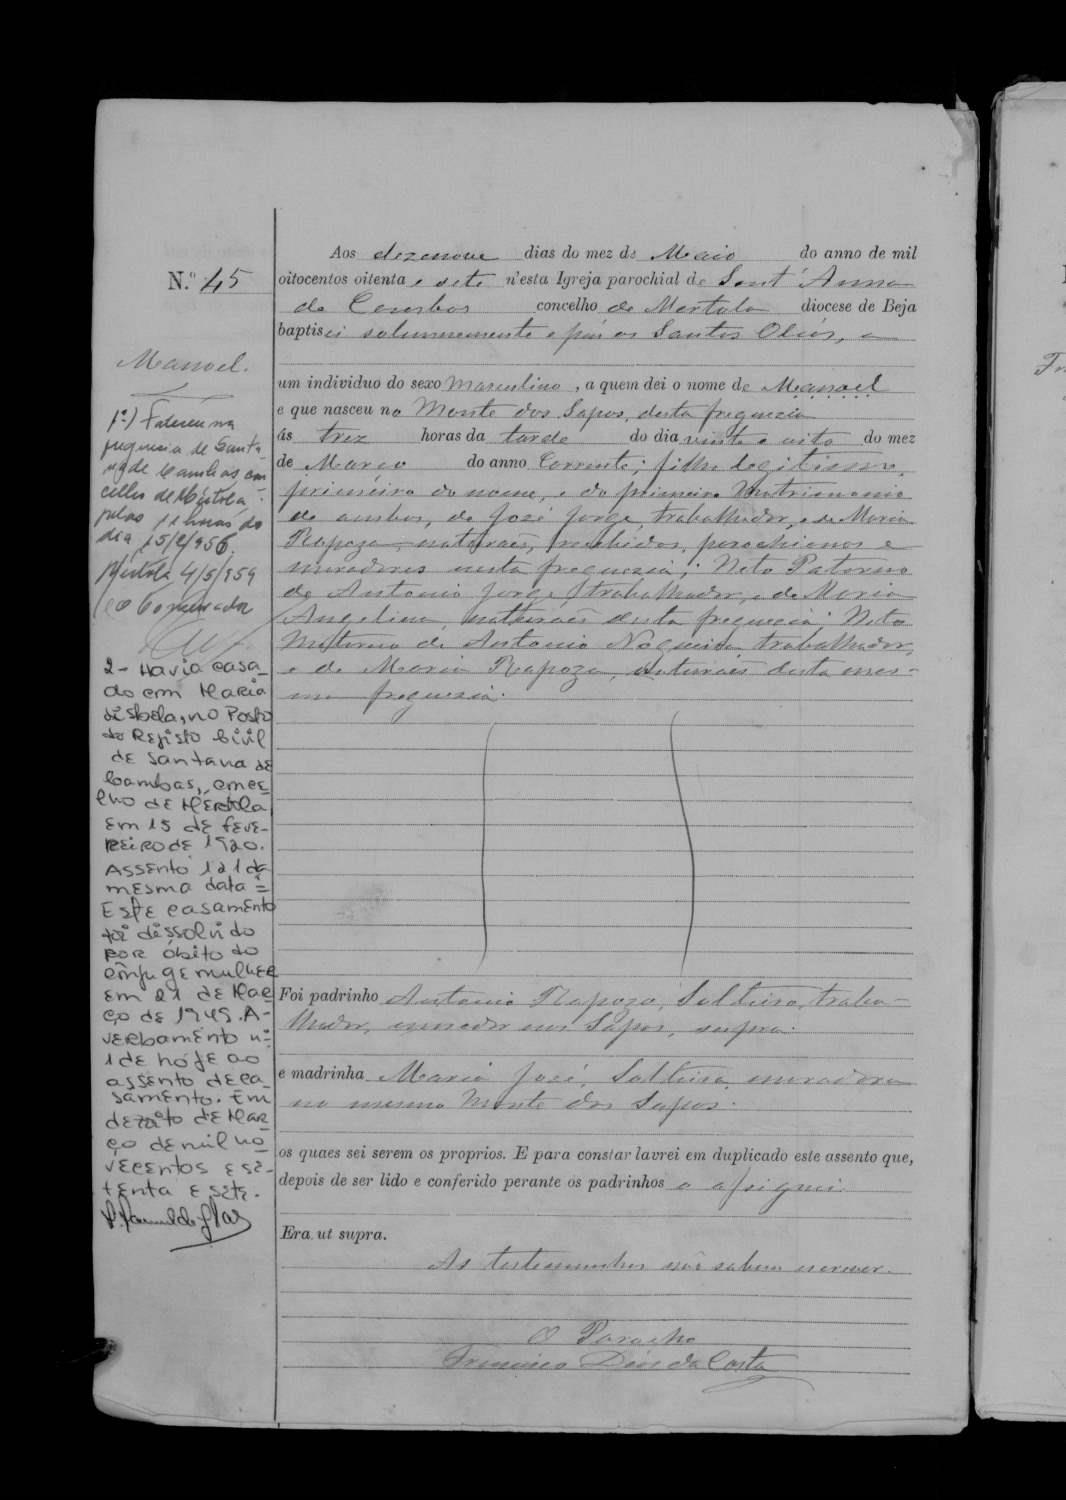 N.º 45
Manoel.
1º) Faleceu na
freguesia de Santa-
na de Cambas con
celho de Mértola
pelas 11 horas do
dia 15/2/956.
Mértola, 4/5/959
O Conservador
2- Havia casa-
do com Maria
Lisbela, no Posto
do Registo Civil
de Santana de
Cambas, conce-
lho de Mértola
em 15 de feve-
reiro de 1920.
Assento 121 da
mesma data =
Este casamento
foi dissolvido
por óbito do
cônjuge mulher
em 21 de Mar
ço de 1949. A-
verbamento nº
1 de hoje ao
assento de ca-
samento. Em
dezoito de Mar
ço de mil no
vecentos e se-
tenta e sete.
Aos dezenove dias do mez de Maio do anno de mil
oitocentos oitenta e sete n'esta Igreja parochial de Sant'Anna
de Cambas concelho de Mertola diocese de Beja
baptisei solemnemente e puz os Santos Oleos, a
um individuo do sexo Masculino, a quem dei o nome de Manoel
e que nasceu no Monte dos Sapos, desta freguezia
ás trez horas da tarde do dia vinte e oito do mez
de Março do anno Corrente; filho legitimo,
primeiro do nome, e do primeiro Matrimonio
de ambos, de José Jorge, trabalhador, e de Maria
Rapoza, naturaes, recebidos, parochianos e
moradores nesta freguezia; Neto Paterno
de Antonio Jorge, trabalhador, e de Maria
Angelina, naturaes desta freguezia; Neto
Materno de Antonio Nogueira, trabalhador,
e de Maria Rapoza, naturaes desta mes-
ma freguezia.
Foi padrinho Antonio Rapozo, Solteiro, traba-
lhador, morador nos Sapos, supra.
e madrinha Maria José, Solteira, moradora
no mesmo Monte dos Sapos.
os quaes sei serem os proprios. E para constar lavrei em duplicado este assento que,
depois de ser lido e conferido perante os padrinhos o assignei.
Era ut supra.
As testemunhas não sabem escrever.
O Parocho
Francisco Dias da Costa